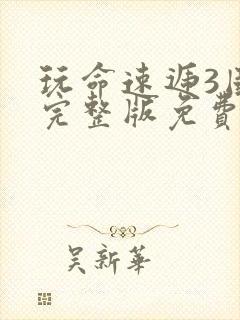 玩命速递3国
完整版免費
吴新華